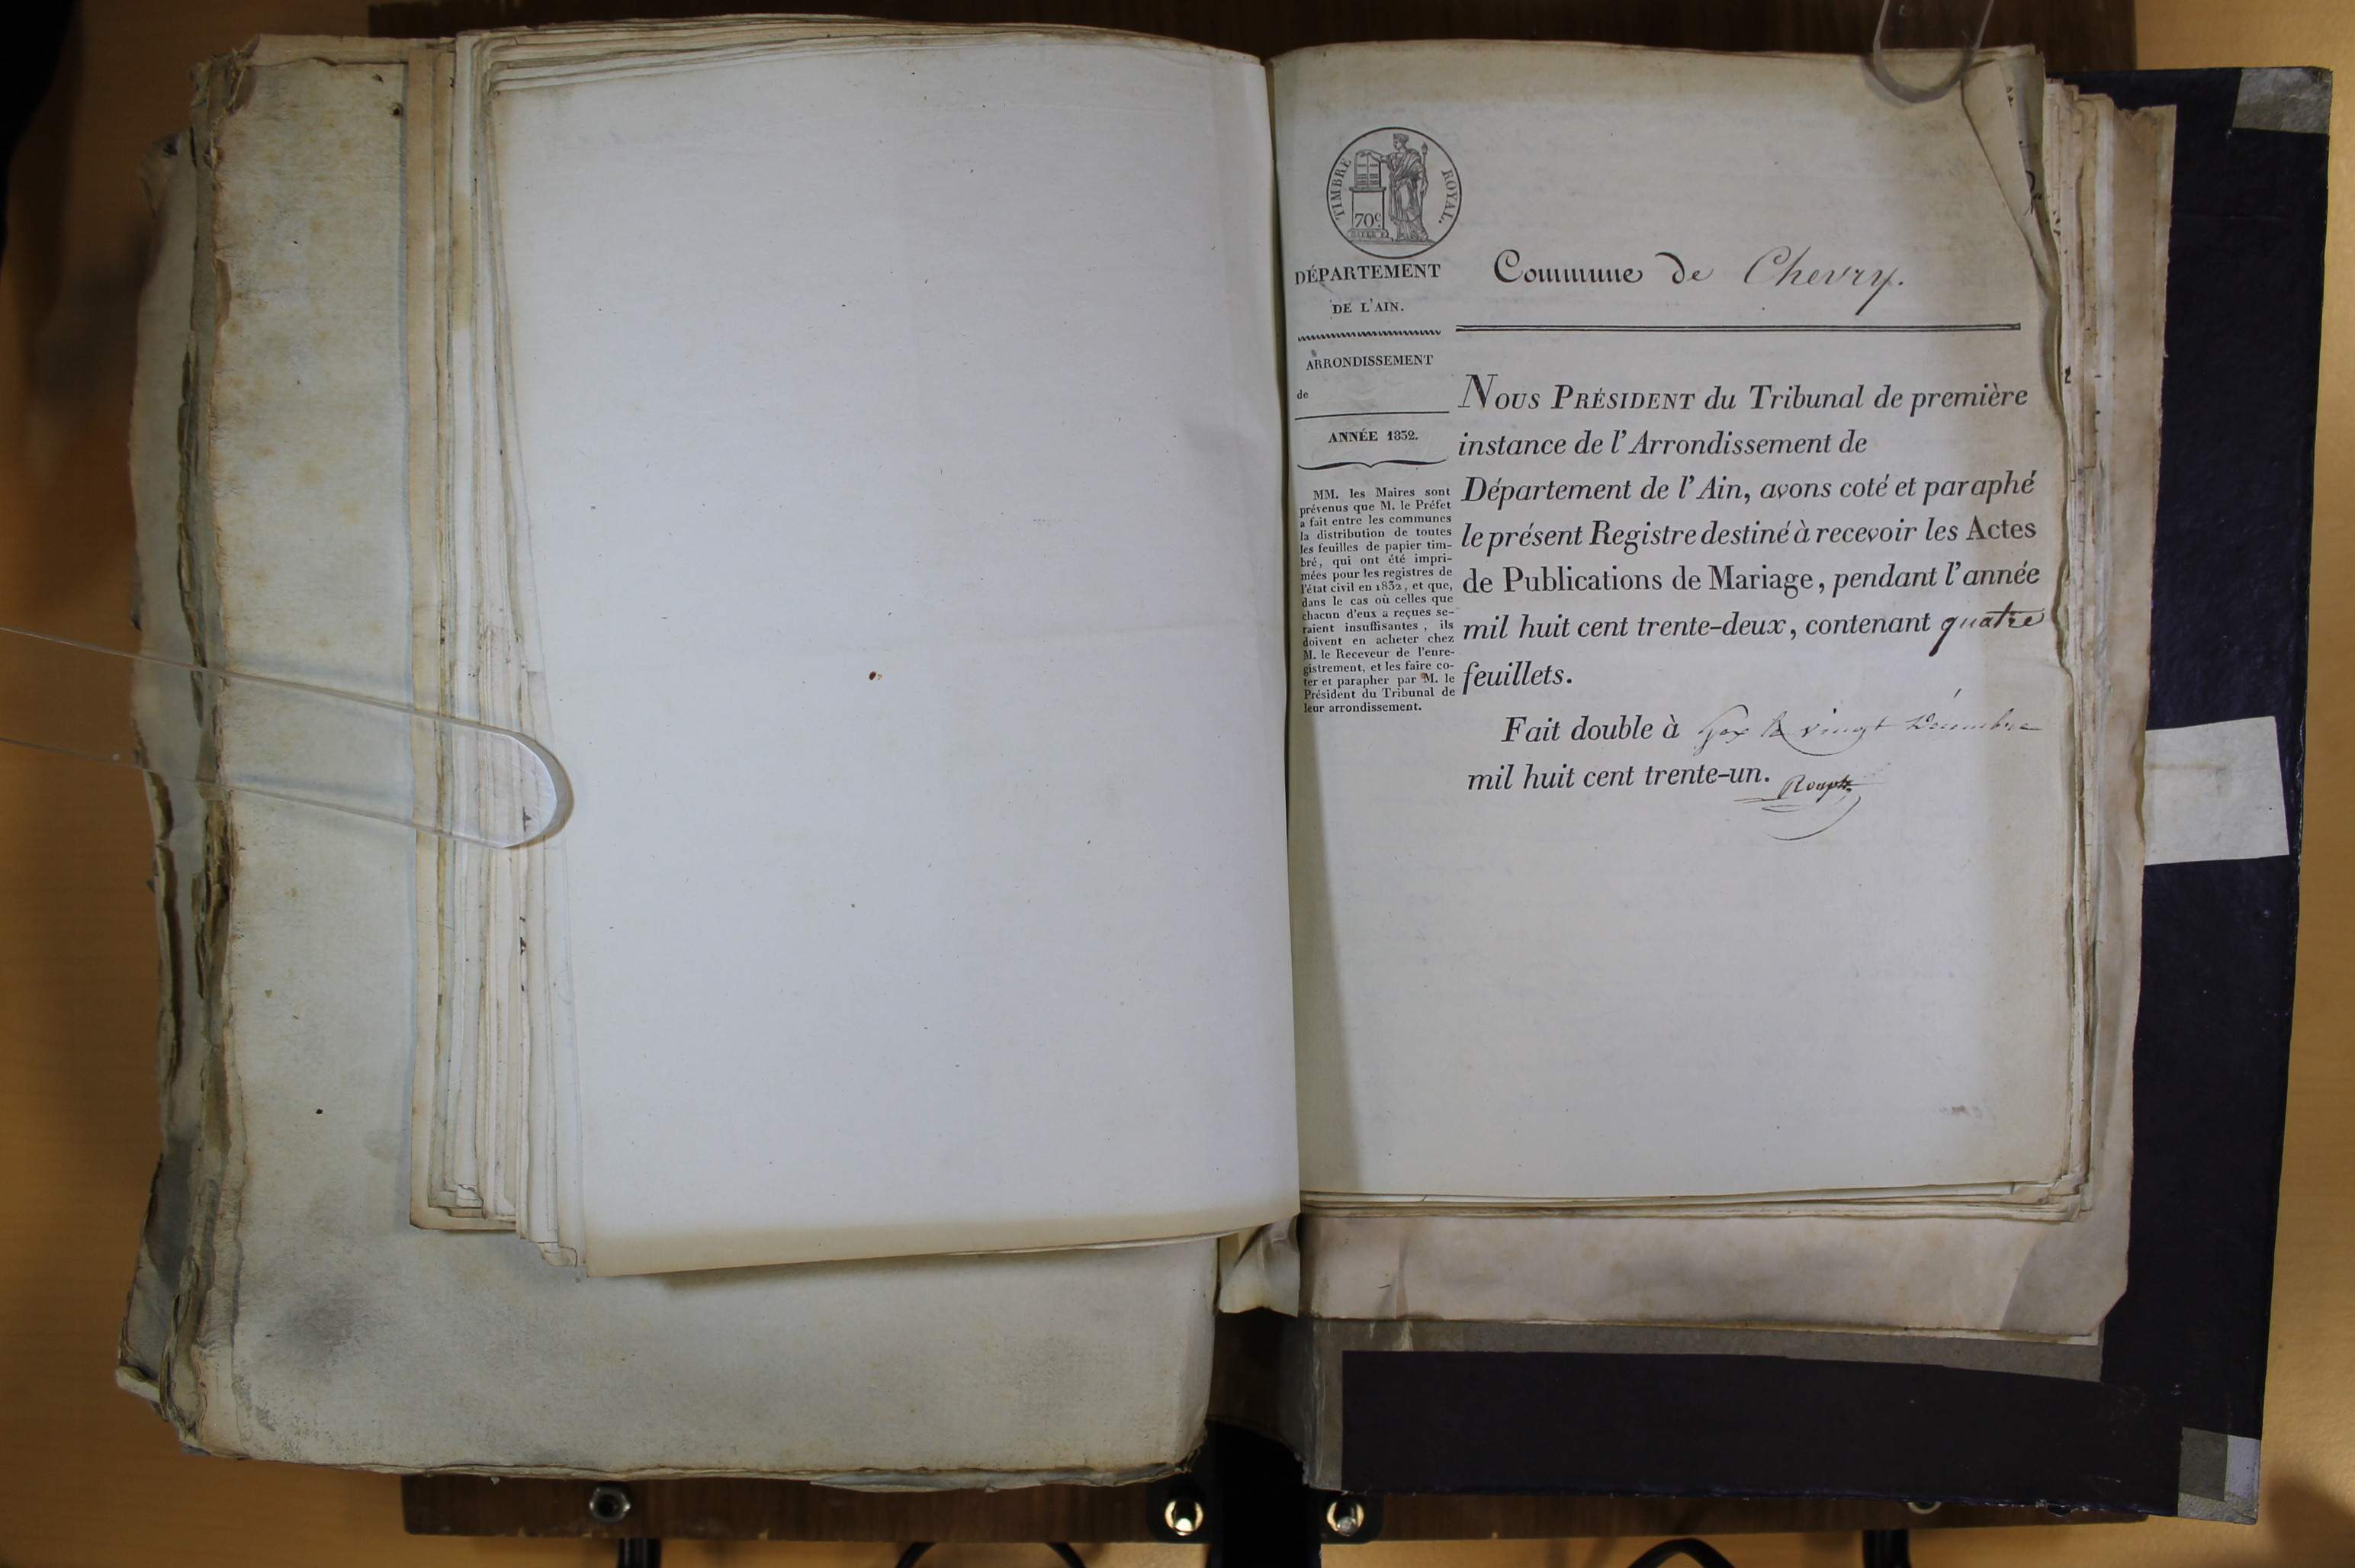 TIMBRE ROYAL.
70c.
DÉPARTEMENT
DE L'AIN.
ARRONDISSEMENT
de
ANNÉE 1832.
MM. les Maires sont
prévenus que M. le Préfet
a fait entre les communes
la distribution de toutes
les feuilles de papier tim-
bré, qui ont été impri-
mées pour les registres de
l'état civil en 1832, et que,
dans le cas où celles que
chacun d'eux a reçues se-
raient insuffisantes, ils
doivent en acheter chez
M. le Receveur de l'enre-
gistrement, et les faire co-
ter et parapher par M. le
Président du Tribunal de
leur arrondissement.
Commune de Chevry.
NOUS PRÉSIDENT du Tribunal de première
instance de l'Arrondissement de
Département de l'Ain, avons coté et paraphé
le présent Registre destiné à recevoir les Actes
de Publications de Mariage, pendant l'année
mil huit cent trente-deux, contenant quatre
feuillets.
Fait double à Gex le vingt Décembre
mil huit cent trente-un.